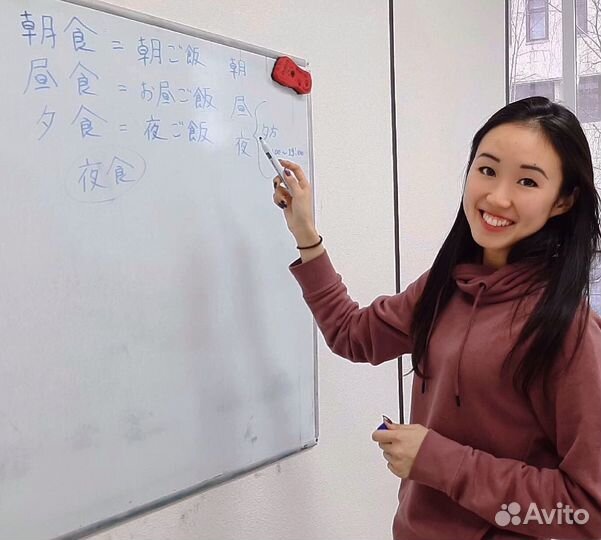 朝食 = 朝ご飯
昼食 = お昼ご飯
夕食 = 夜ご飯
夜食
朝
昼
夜
夕方
:00~19:00
Avito